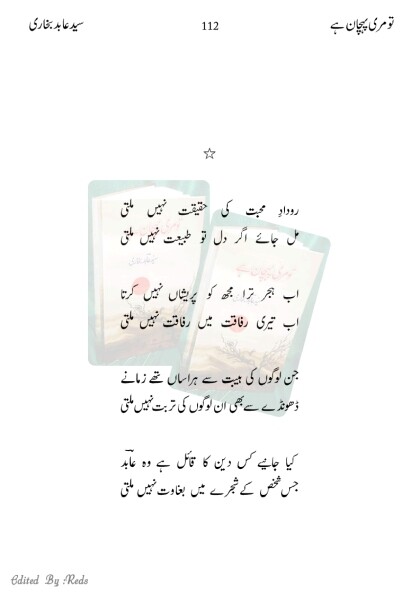 تو مری پہچان ہے 112 سید عابد بخاری
☆
رودادِ محبت کی حقیقت نہیں ملتی
مل جائے اگر دل تو طبیعت نہیں ملتی
اب ہجر ترا مجھ کو پریشاں نہیں کرتا
اب تیری رفاقت میں رفاقت نہیں ملتی
جن لوگوں کی ہیبت سے ہراساں تھے زمانے
ڈھونڈے سے بھی ان لوگوں کی تربت نہیں ملتی
کیا جانیے کس دین کا قائل ہے وہ عابدؔ
جس شخص کے شجرے میں بغاوت نہیں ملتی
Edited By :Reds